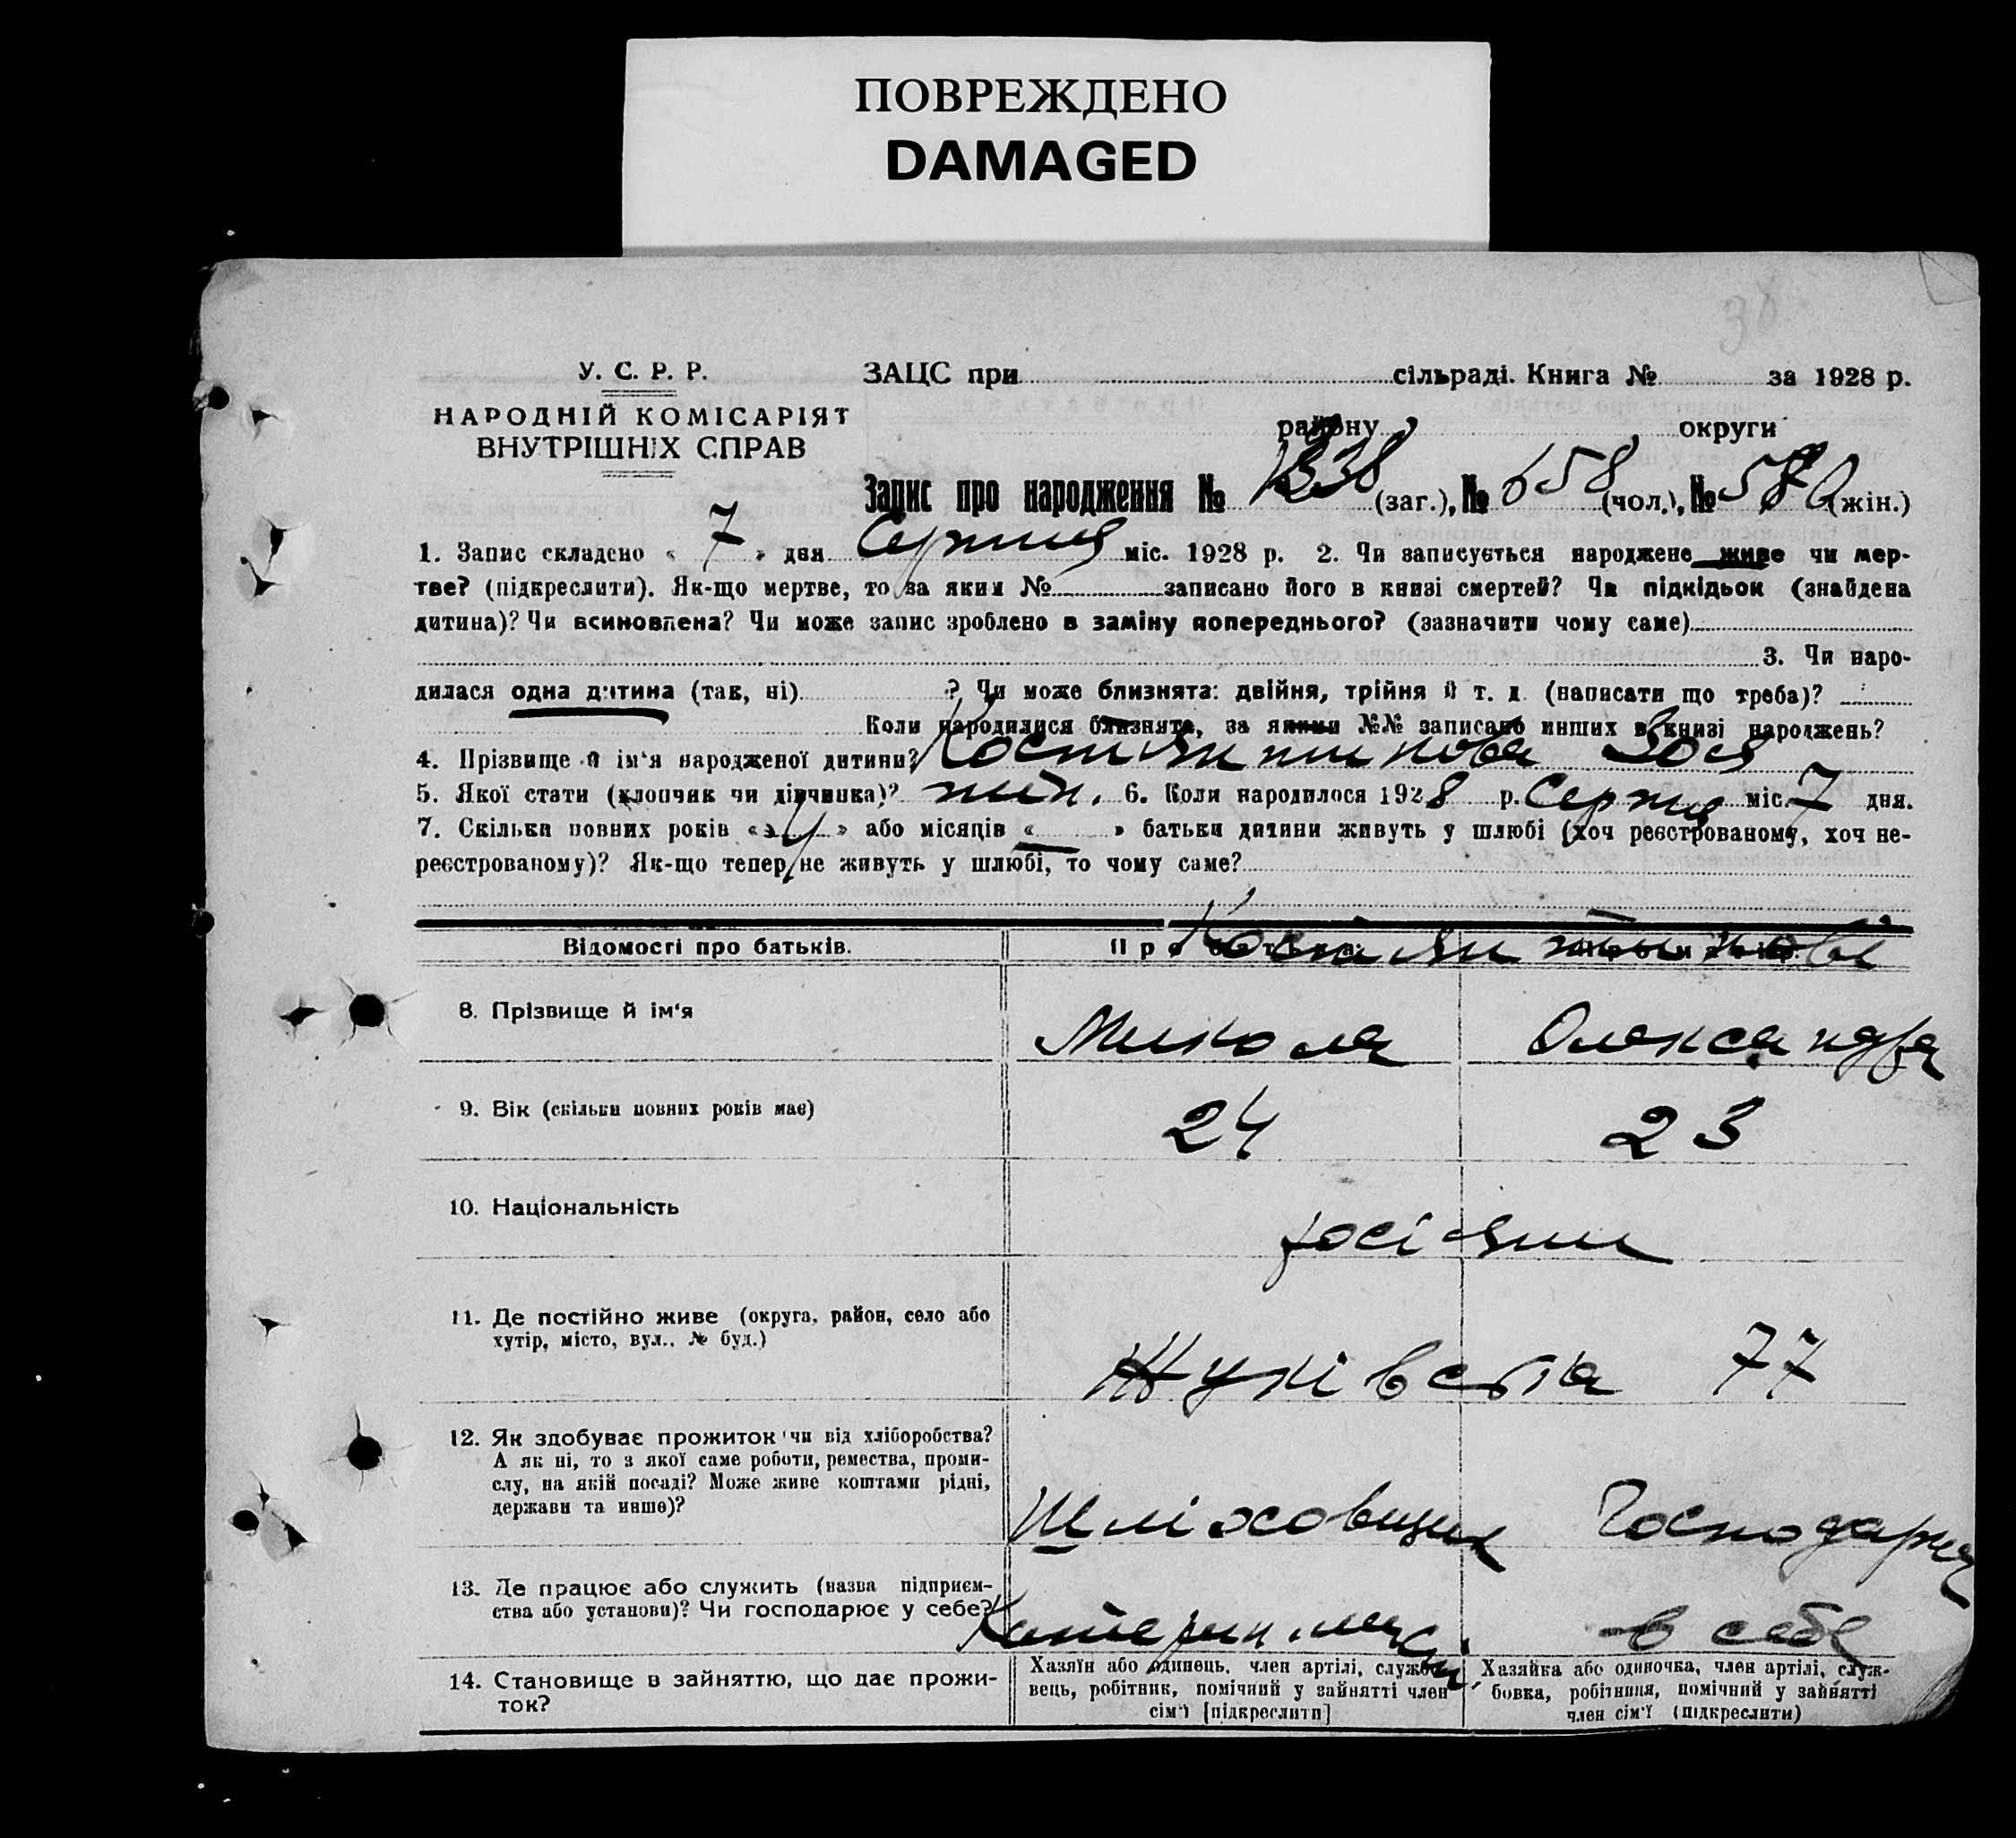 ПОВРЕЖДЕНО
DAMAGED
38
У. С. Р. Р.
НАРОДНІЙ КОМІСАРІЯТ
ВНУТРІШНІХ СПРАВ
ЗАЦС при сільраді. Книга № за 1928 р.
району округи
Запис про народження № 1238 (заг.), № 658 (чол.), № 580 (жін.)
1. Запис складено « 7 » дня Серпня міс. 1928 р. 2. Чи записується народжене живе чи мер-
тве? (підкреслити). Як-що мертве, то за яким № записано його в книзі смертей? Чи підкідьок (знайдена
дитина)? Чи всиновлена? Чи може запис зроблено в заміну попереднього? (зазначити чому саме)
3. Чи наро-
дилася одна дитина (так, ні) ? Чи може близнята: двійня, трійня й т. д. (написати що треба)?
Коли народилися близнята, за якими №№ записано инших в книзі народжень?
4. Прізвище й ім'я народженої дитини? Костянтинова Зоя
5. Якої стати (хлопчик чи дівчинка)? жін. 6. Коли народилося 1928 р. Серпня міс. 7 дня.
7. Скільки повних років « 4 » або місяців « » батьки дитини живуть у шлюбі (хоч реєстрованому, хоч не-
реєстрованому)? Як-що тепер не живуть у шлюбі, то чому саме?
Відомості про батьків. Про батька. Про матір.
Костянтинові
8. Прізвище й ім'я Микола Олександра
9. Вік (скільки повних років має) 24 23
10. Національність росіяни
11. Де постійно живе (округа, район, село або
хутір, місто, вул., № буд.)
Жуківська 77
12. Як здобуває прожиток чи від хліборобства?
А як ні, то з якої саме роботи, ремества, проми-
слу, на якій посаді? Може живе коштами рідні,
держави та инше)?
Шліховщик Господарка
13. Де працює або служить (назва підприєм-
ства або установи)? Чи господарює у себе?
в себе
14. Становище в зайняттю, що дає прожи-
ток?
Хазяїн або одинець, член артілі, службо-
вець, робітник, помічний у зайнятті член
сім'ї [підкреслити]
Хазяйка або одиночка, член артілі, служ-
бовка, робітниця, помічний у зайнятті
член сім'ї (підкреслити)